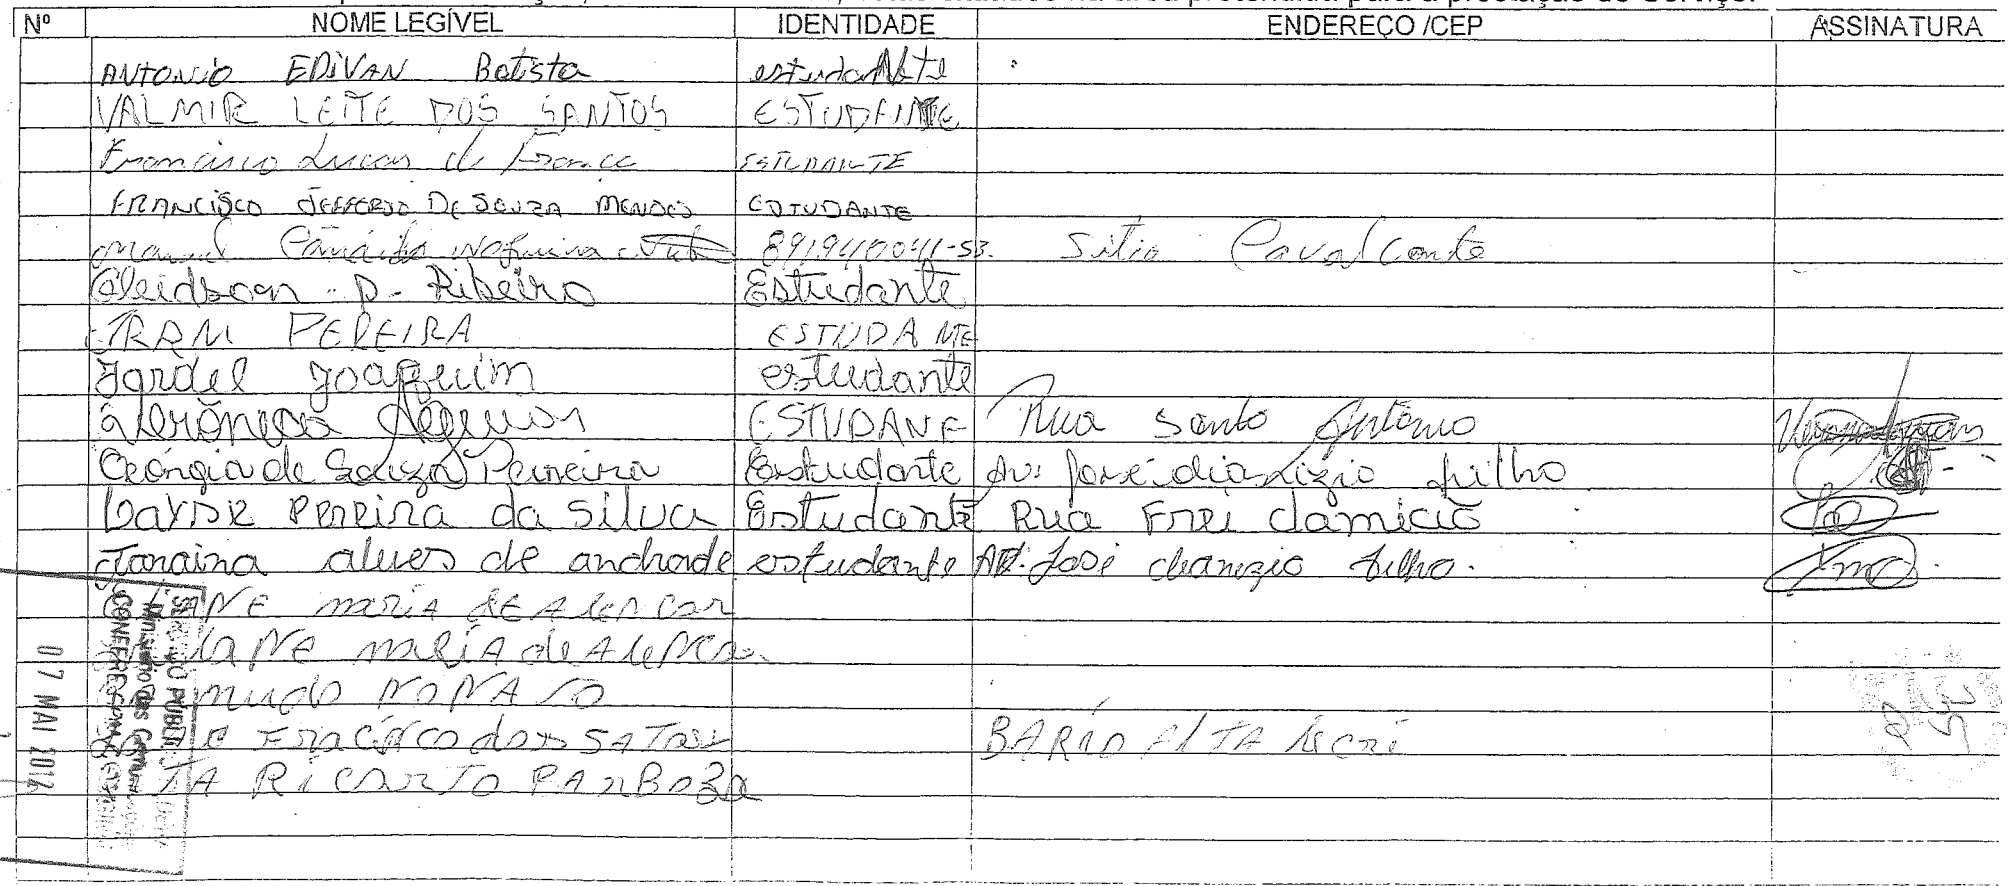 para a prestação do Serviço.
Nº NOME LEGÍVEL IDENTIDADE ENDEREÇO /CEP ASSINATURA
ANTONIO EDIVAN Batista estudaNte
VALMIR LEITE DOS SANTOS ESTUDANTE
Francisco Lucas de França ESTUDANTE
FRANCISCO JEFFERSO DE SOUZA MENDES ESTUDANTE
Manuel Cândido Nogueira Neto 891940041-53. Sitio Cavalcante
Cleidson - P - Ribeiro Estudante
IRAM PEREIRA ESTUDANTE
Jardel Joaquim estudante
Verônica ESTUDANE Rua Santo Antônio
Geórgia de Souza Pereira Estudante Av: José dionizio filho
Pereira da Silva Estudante Rua Frei damião
Janaina alves de andrade estudante AV. José dianizio filho.
ANE maria dE AlenCar
laNe maRiA de AleNCa
mudo NoNATO
FRACisco dos SATos BARIO AlTA
TA RiCARTO BARBOZa
SERVIÇO PÚBLICO
Ministério das Comunicações
CONFERE COM
07 MAI 2014